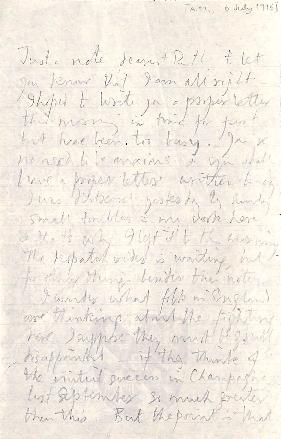 6 July 1916
Just a note dearest Ruth to let
you know that I am all right -
I hoped to write you a proper letter
this morning in time for post
but have been too busy.
no need to be anxious & you shall
have a proper letter written to-day
I was bothered yesterday by
small troubles in my work here
so that's why I left it to this morning
The despatch rider is waiting
for other things besides this note
I wonder what folk in England
are thinking about the fighting
here. I suppose they must be
disappointed if they think of
the initial success in Champagne
last September so much greater
than this But the point is that